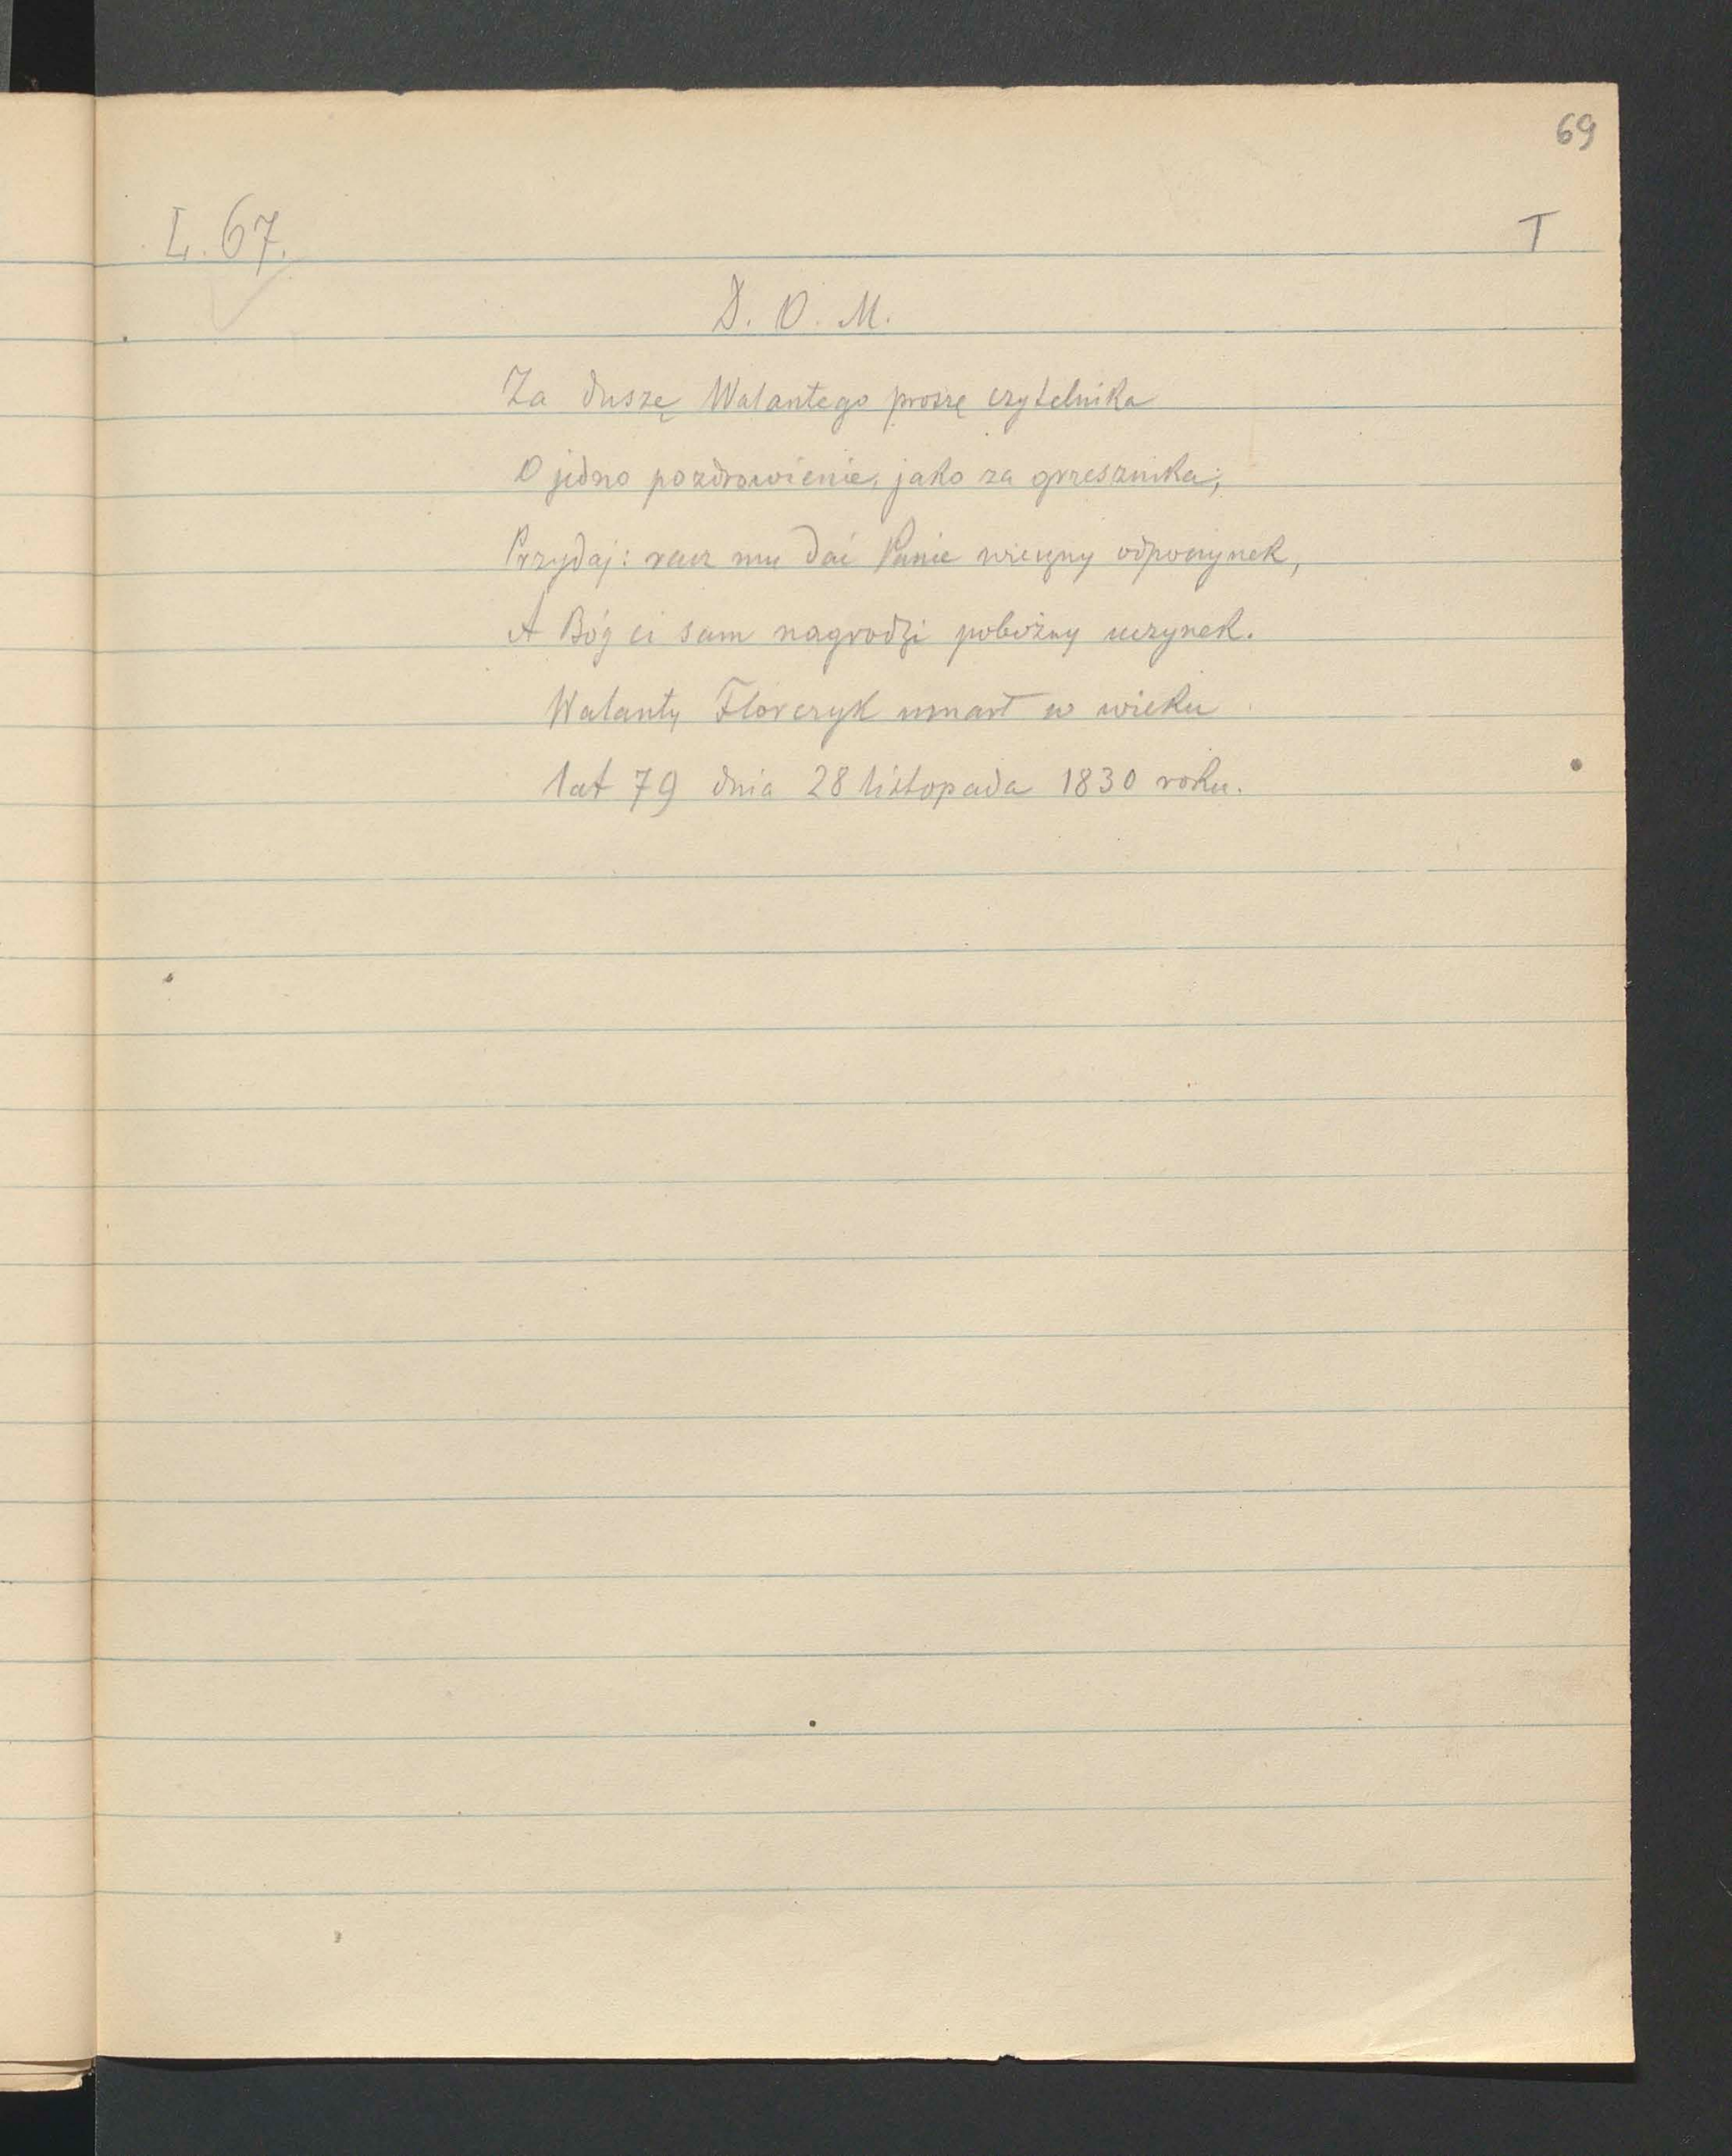 69
L. 67.
T
D. O. M.
Za duszę Walantego proszę czytelnika
O jedno pozdrowienie, jako za grzesznika;
Przydaj: racz mu dać Panie wieczny odpoczynek,
A Bóg ci sam nagrodzi pobożny uczynek.
Walanty Florczyk umarł w wieku
lat 79 dnia 28 listopada 1830 roku.